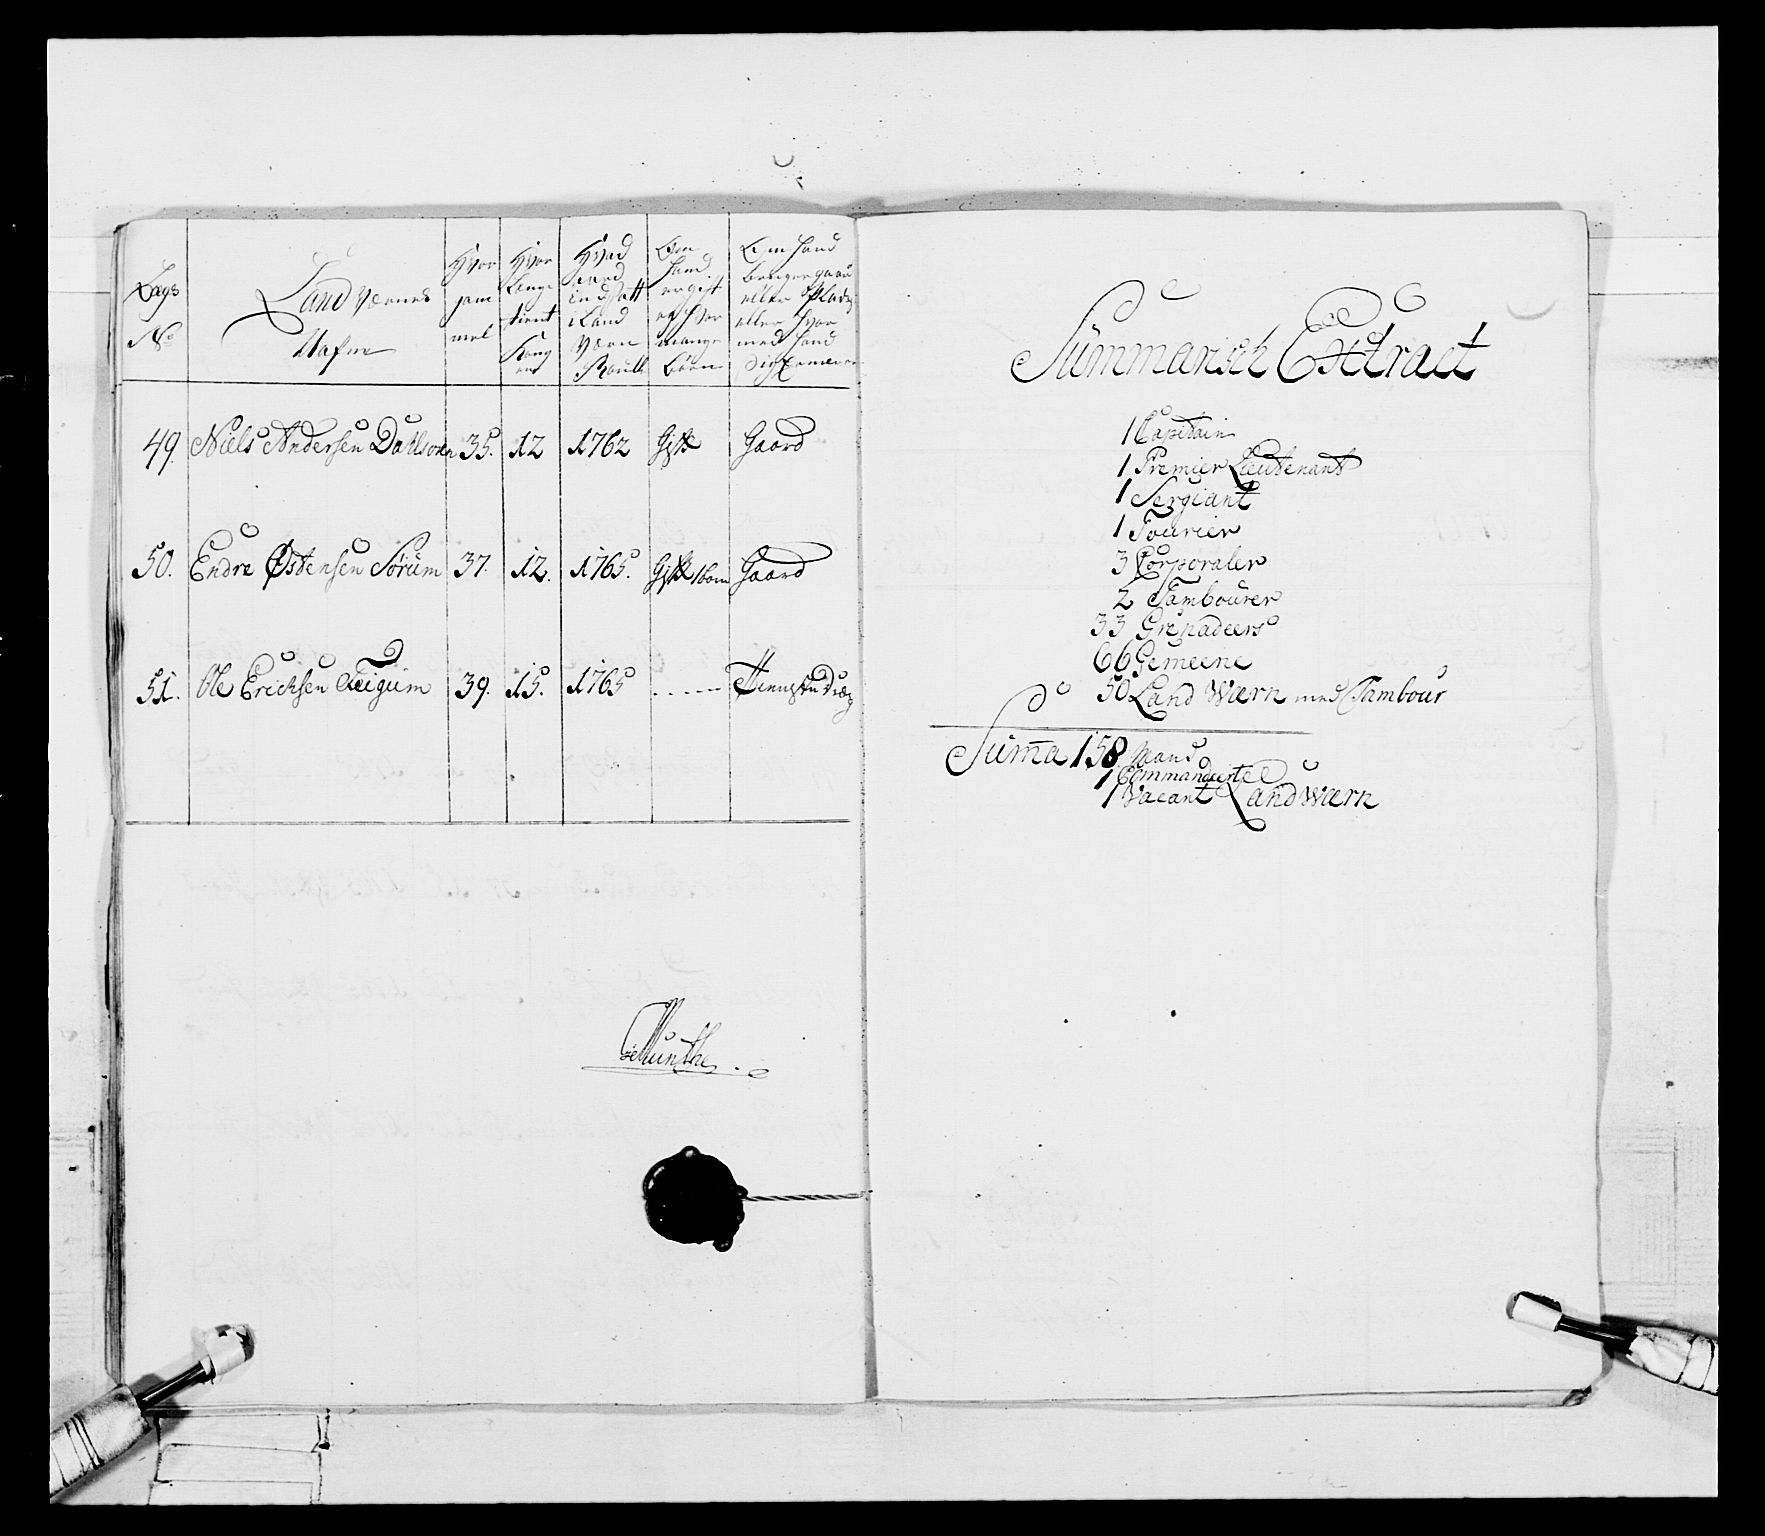 Lægs No | Land Værnes Nafne | Hvor gammel | Hvor Lange tient Kongen | Hvad aard indsatt i Land Værn Roulle | Om hand er gift og hvor mange börn | Om hand bruger gaard eller Plads eller hvor med hand sig ernærer
49. Niels Andersen Dahlsøren 35. 12 1762 Gift Gaard
50. Endre Østensen Sørüm 37. 12. 1765. Gift 1 barn Gaard
51. Ole Erichsen Feigum 39. 15. 1765 - - - -
Münthe.
Summarisch Extract
1 Capitain
1 Premier Lieutenant
1 Sergiant
1 Fourier
3 Corporaler
2 Tambourer
33 Grenadeers
66 Gemeene
50 Land Wærn med Tambour
Suma 158 Mand
1 Commandeert
1 Vacant Landwærn